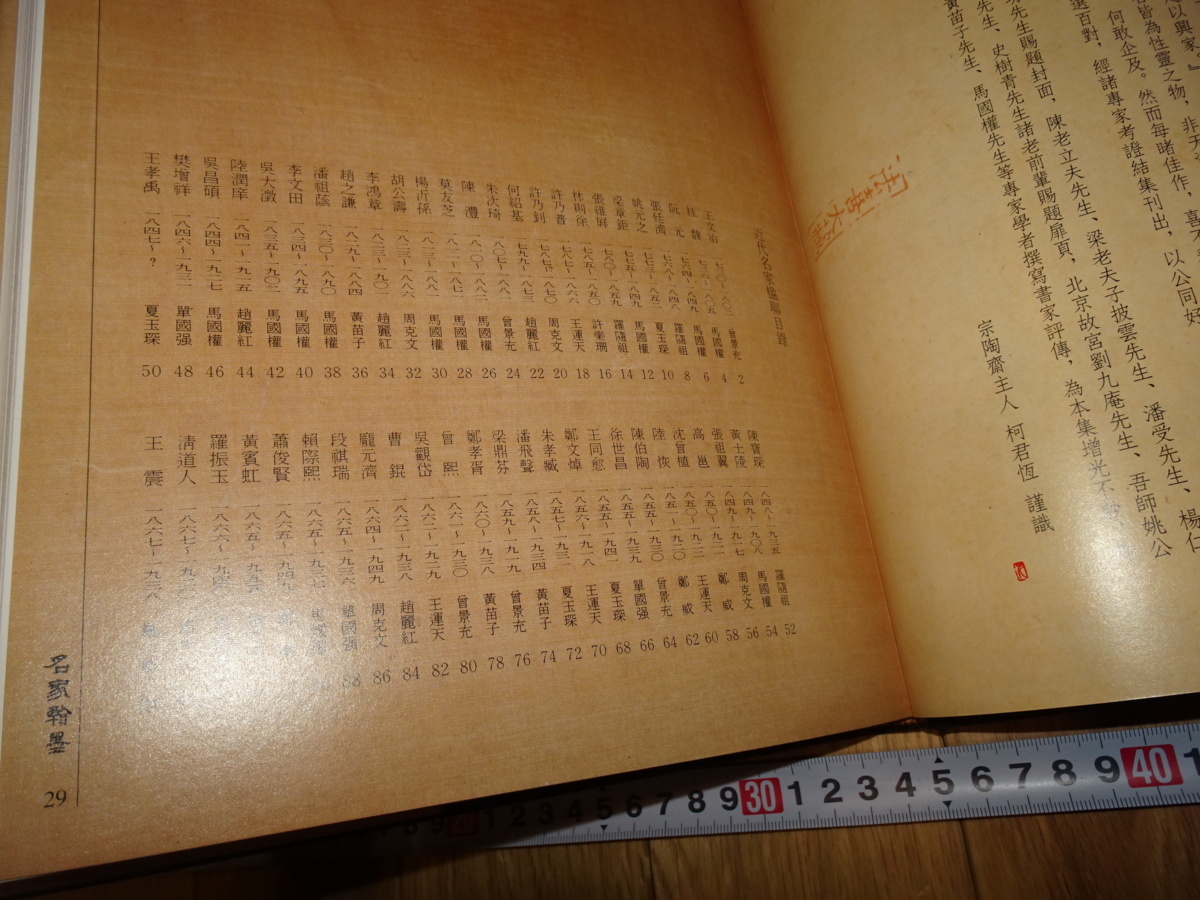 起以興家。』
皆為性靈之物，非天
何敢企及。然而每睹佳作，喜不
選百對，經諸專家考證結集刊出，以公同好
先生賜題封面，陳老立夫先生、梁老夫子披雲先生、潘受先生、楊仁
先生、史樹青先生諸老前輩賜題扉頁，北京故宮劉九庵先生、吾師姚公
黃苗子先生、馬國權先生等專家學者撰寫書家評傳，為本集增光不
宗陶齋主人 柯君恆 謹識
近代名家楹聯目錄
王文治 一七三〇～一八〇二 曾景充 2
桂馥 一七三六～一八〇五 馬國權 4
阮元 一七六四～一八四九 馬國權 6
張廷濟 一七六八～一八四八 羅隨祖 8
姚元之 一七七三～一八五二 夏玉琛 10
梁章鉅 一七七五～一八四九 馬國權 12
張維屏 一七八〇～一八五九 羅隨祖 14
林則徐 一七八五～一八五〇 許禮珊 16
許乃普 一七八七～一八六六 王運天 18
許乃釗 一七八七?～一八七〇 周克文 20
何紹基 一七九九～一八七三 趙麗紅 22
朱次琦 一八〇七～一八八一 曾景充 24
陳澧 馬國權 26
莫友芝 馬國權 28
楊沂孫 馬國權 30
胡公壽 一八二三～一八八六 周克文 32
李鴻章 一八二三～一九〇一 趙麗紅 34
趙之謙 一八二九～一八八四 黃苗子 36
潘祖蔭 一八三〇～一八九〇 馬國權 38
李文田 一八三四～一八九五 馬國權 40
吳大澂 一八三五～一九〇二 馬國權 42
陸潤庠 一八四一～一九一五 趙麗紅 44
吳昌碩 一八四四～一九二七 馬國權 46
樊增祥 一八四六～一九三一 單國强 48
王孝禹 一八四七～？ 夏玉琛 50
陳寶琛 一八四八～一九三五 羅隨祖 52
黃士陵 一八四九～一九〇八 馬國權 54
張祖翼 一八四九～一九一七 周克文 56
高邕 一八五〇～一九二一 鄭威 58
沈曾植 一八五〇～一九二二 王運天 60
陸恢 一八五一～一九二〇 鄭威 62
陳伯陶 一八五五～一九三〇 曾景充 64
徐世昌 一八五五～一九三九 單國强 66
王同愈 一八五五～一九四一 夏玉琛 68
鄭文焯 一八五六～一九一八 王運天 70
朱孝臧 一八五七～一九三一 夏玉琛 72
潘飛聲 一八五八～一九三四 黃苗子 74
梁鼎芬 一八五九～一九一九 曾景充 76
鄭孝胥 一八六〇～一九三八 黃苗子 78
曾熙 一八六一～一九三〇 曾景充 80
吳觀岱 一八六二～一九二九 王運天 82
曹錕 一八六二～一九三八 趙麗紅 84
龐元濟 一八六四～一九四九 周克文 86
段祺瑞 一八六五～一九三六 單國强 88
賴際熙 一八六五～一九三七
蕭俊賢 一八六五～一九四九
黃賓虹 一八六五～一九五五
羅振玉 一八六六～一九四〇
清道人 一八六七～一九二〇
王震 一八六七～一九三八
名家翰墨
29
8 9 20 1 2 3 4 5 6 7 8 9 30 1 2 3 4 5 6 7 8 9 40 1